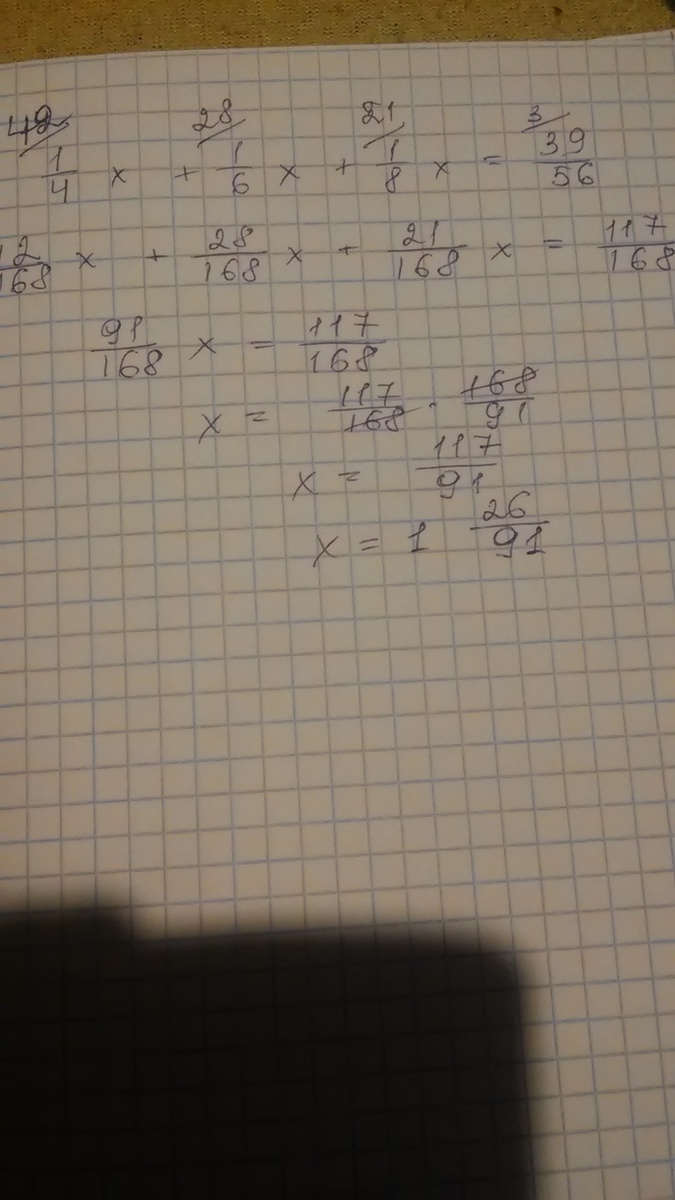 42/ 28/ 21/ 3/
1/4 x + 1/6 x + 1/8 x = 39/56
42/168 x + 28/168 x + 21/168 x = 117/168
91/168 x = 117/168
x = 117/168 · 168/91
x = 117/91
x = 1 26/91